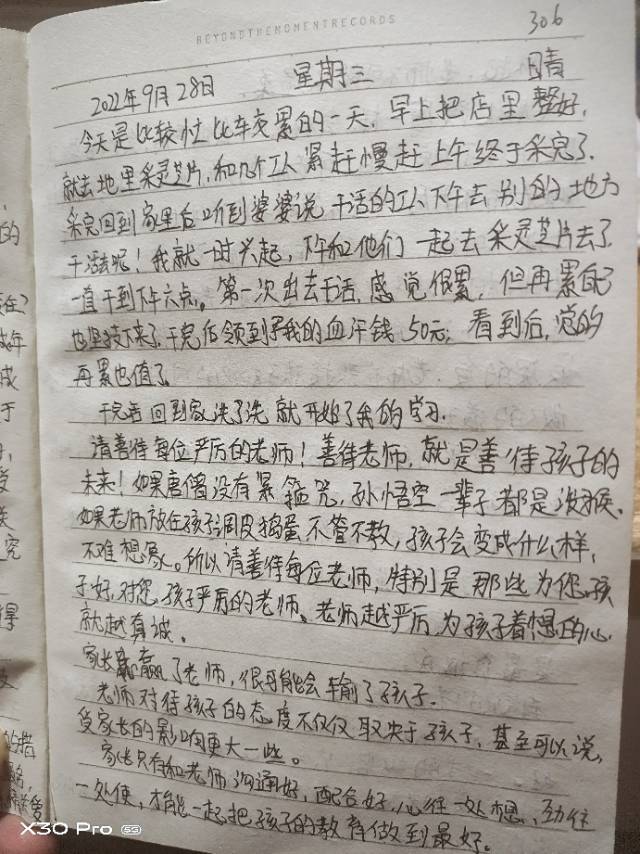 BEYONDTHEMOMENTRECORDS
306
2022年9月28日 星期三 晴
今天是比较忙比较累的一天，早上把店里整好，
就去地里采灵芝片，和几个工人紧赶慢赶上午终于采完了。
采完回到家里后听到婆婆说干活的工人下午去别的地方
干活去呢！我就一时兴起，下午和他们一起去采灵芝片去了
一直干到下午六点。第一次出去干活，感觉很累，但再累自己
也坚持下来了，干完后领到了我的血汗钱50元，看到后，觉的
再累也值了。
干完活回到家洗了洗就开始了我的学习。
请善待每位严厉的老师！善待老师，就是善待孩子的
未来！如果唐僧没有紧箍咒，孙悟空一辈子都是泼猴。
如果老师放任孩子调皮捣蛋不管不教，孩子会变成什么样，
不难想象。所以请善待每位老师，特别是那些为您孩
子好，对您孩子严厉的老师、老师越严厉，为孩子着想的心
就越真诚。
家长赢了老师，很可能会输了孩子.
老师对待孩子的态度不仅仅取决于孩子，甚至可以说，
受家长的影响更大一些。
家长只有和老师沟通好，配合好，心往一处想，劲往
一处使，才能一起把孩子的教育做到最好。
X30 Pro 5G